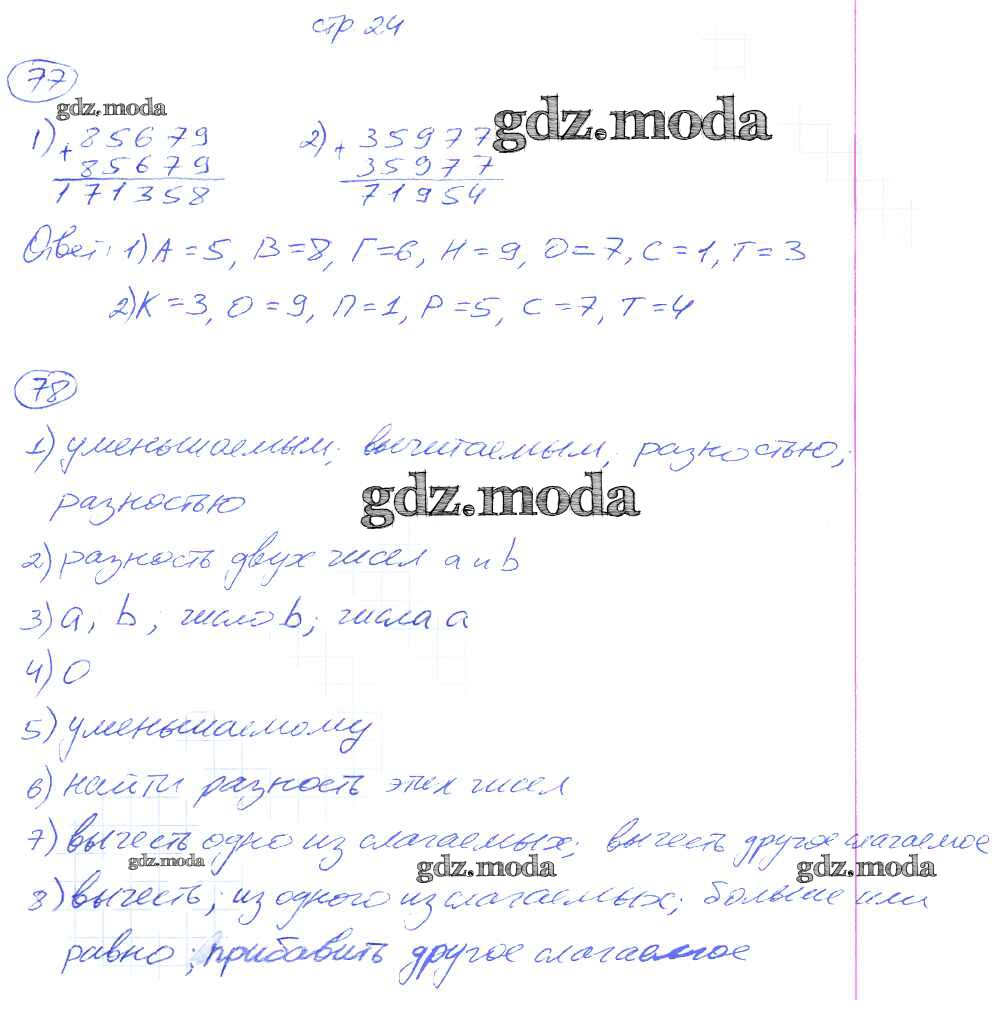 стр 24
77
gdz.moda
1) + 85679 2) + 35977 gdz.moda
85679 35977
171358 71954
Ответ: 1) А = 5, В = 8, Г = 6, Н = 9, О = 7, С = 1, Т = 3
2) К = 3, О = 9, П = 1, Р = 5, С = 7, Т = 4
78
1) уменьшаемым; вычитаемым; разностью;
разностью gdz.moda
2) разность двух чисел a и b
3) a, b; число b; числа a
4) 0
5) уменьшаемому
6) найти разность этих чисел
7) вычесть одно из слагаемых; вычесть другое слагаемое
gdz.moda gdz.moda gdz.moda
8) вычесть; из одного из слагаемых; больше или
равно; прибавить другое слагаемое